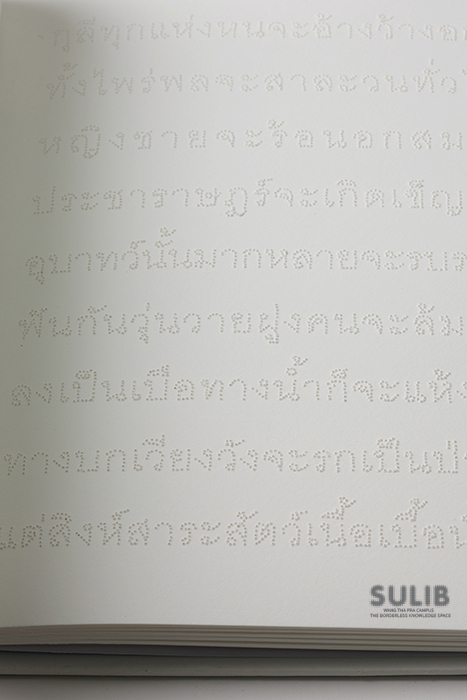 ทุกแห่งหนจะอ้างว้าง
ทั้งไพร่พลจะสาละวนทั่ว
หญิงชายจะร้อนอก
ประชาราษฎร์จะเกิดเข็ญ
อุบาทว์นั้นมากหลายจะ
ฟันกันวุ่นวายฝูงคนจะล้ม
ลงเป็นเบือทางน้ำก็จะแห้ง
ทางบกเวียงวังจะรกเป็นป่า
แต่สิงห์สาระสัตว์เนื้อเบื้อ
SULIB
WANG THA PRA CAMPUS
THE BORDERLESS KNOWLEDGE SPACE